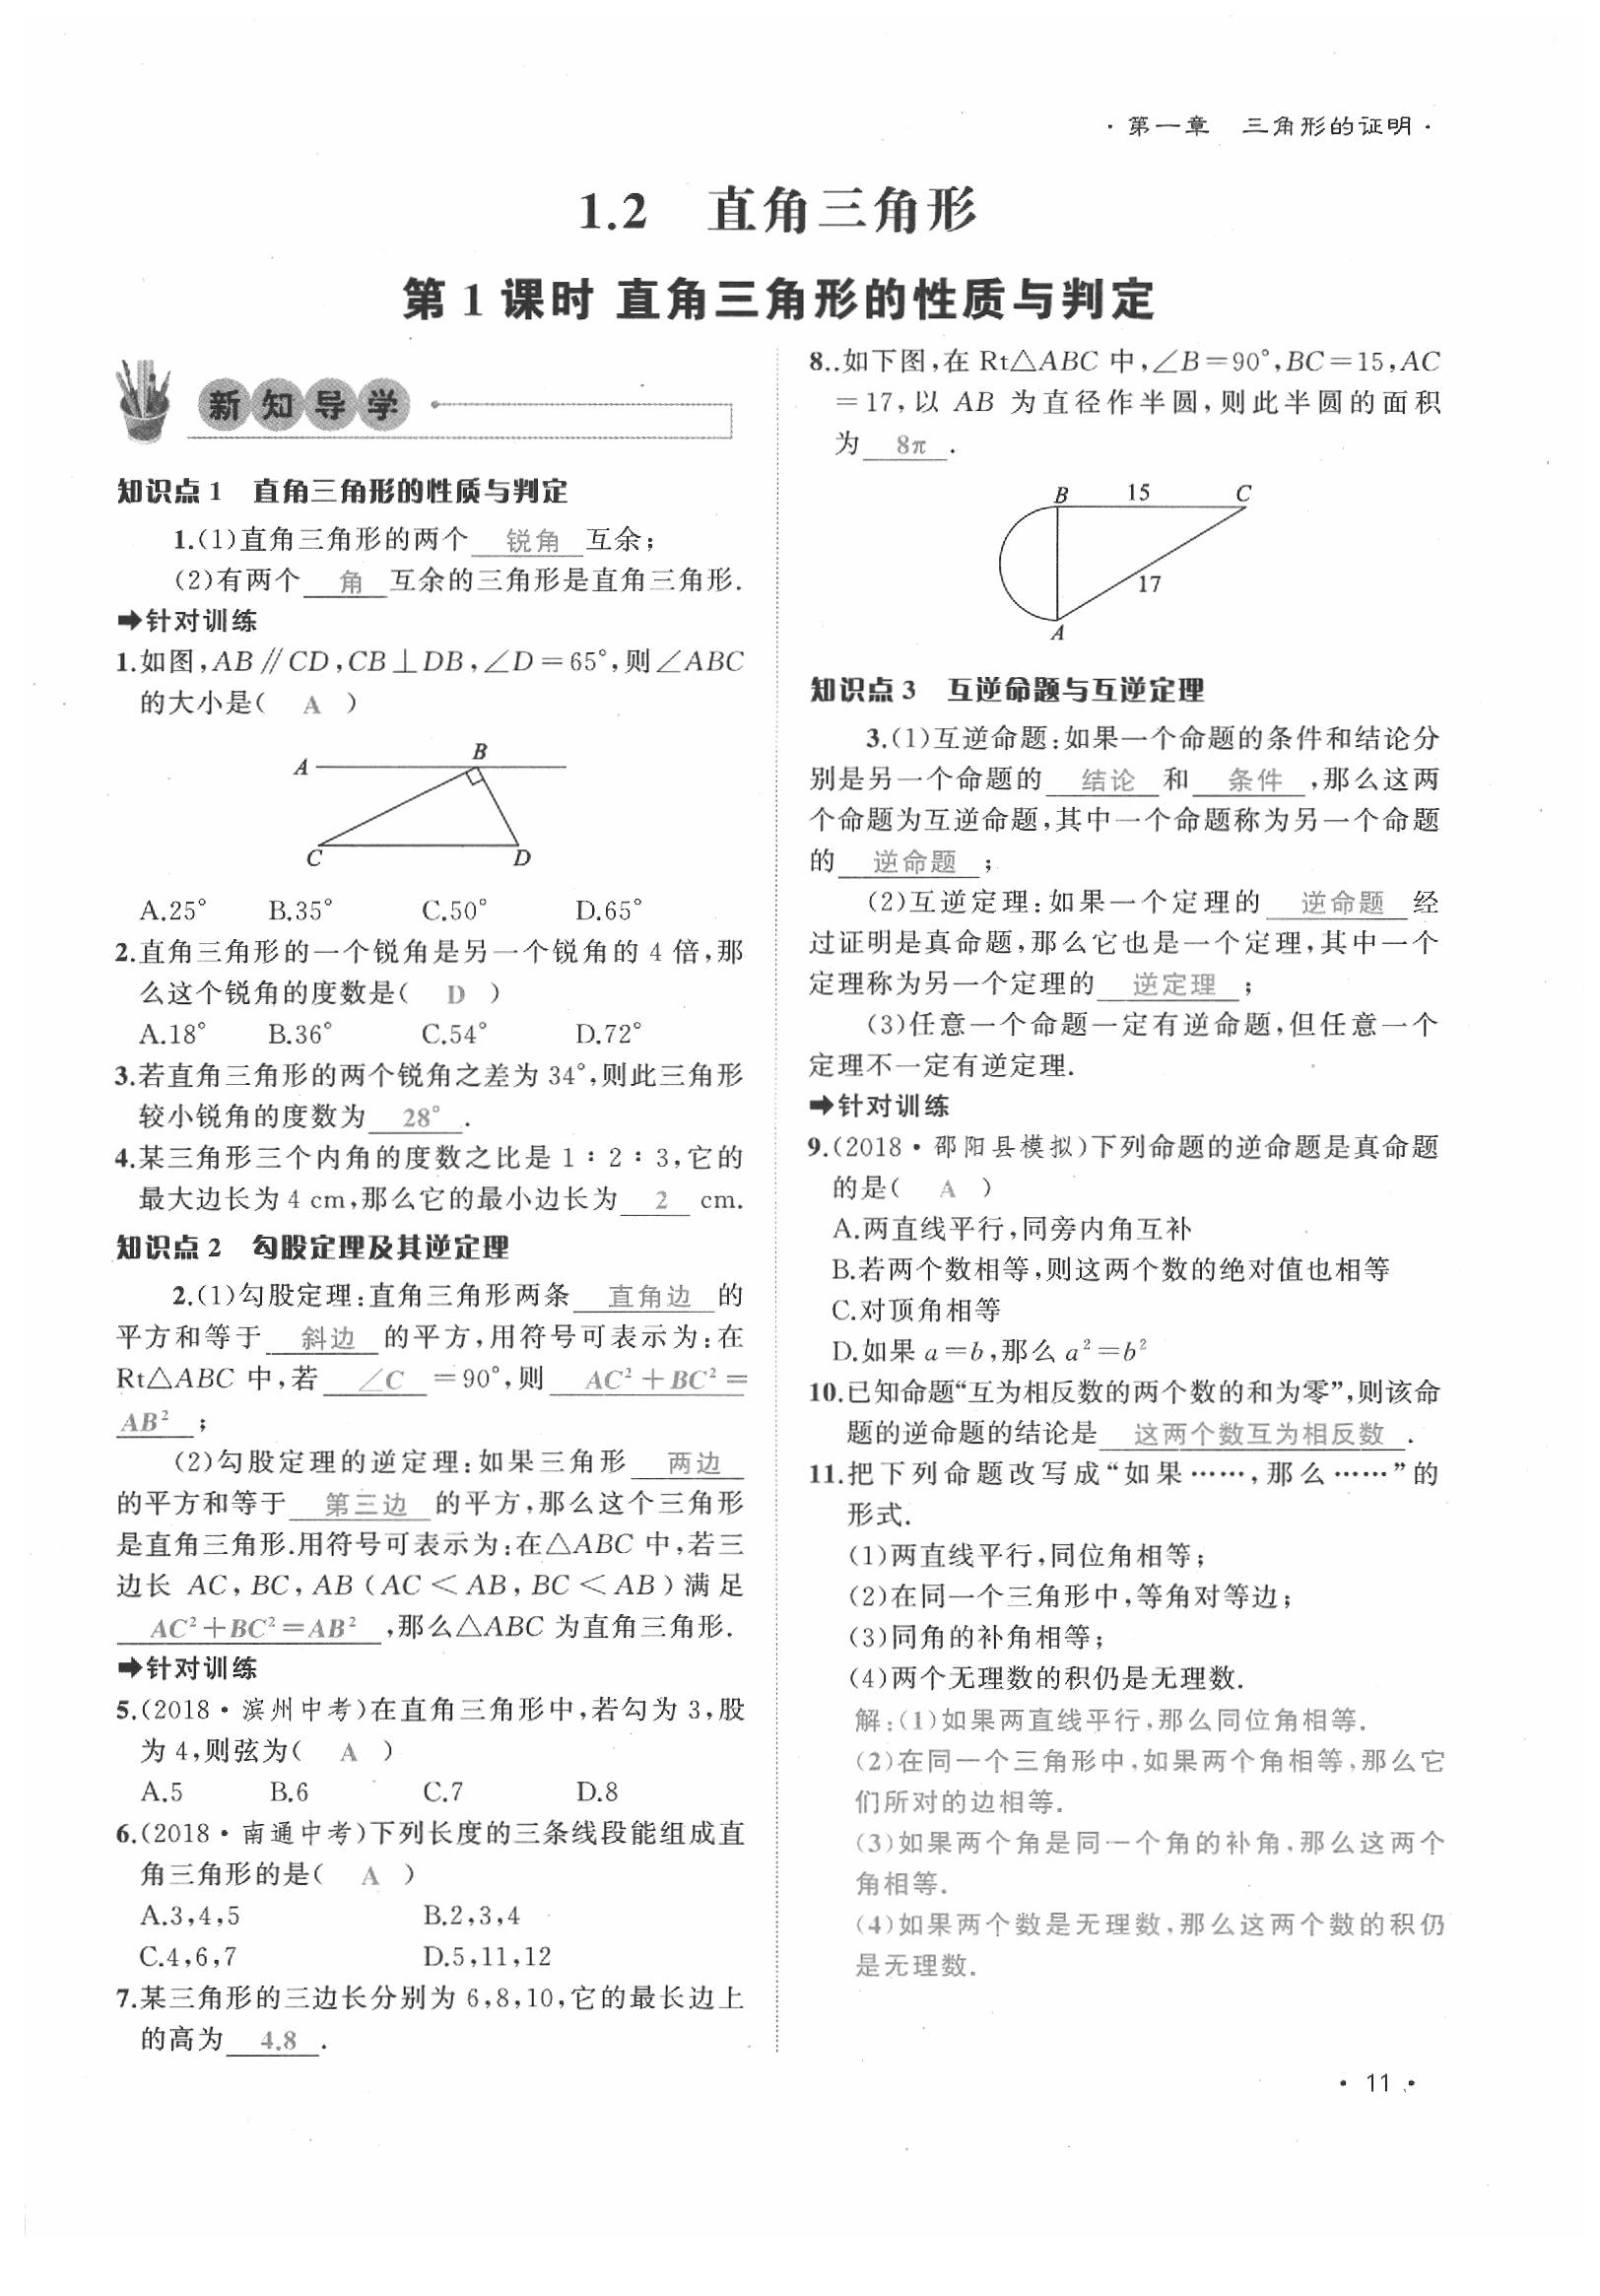 ·第一章　三角形的证明·
1.2　直角三角形
第1课时 直角三角形的性质与判定
新知导学
知识点1　直角三角形的性质与判定
1.(1)直角三角形的两个 锐角 互余;
(2)有两个 角 互余的三角形是直角三角形.
➡针对训练
1.如图,AB∥CD,CB⊥DB,∠D=65°,则∠ABC
的大小是( A )
A
B
C
D
A.25° B.35° C.50° D.65°
2.直角三角形的一个锐角是另一个锐角的4倍,那
么这个锐角的度数是( D )
A.18° B.36° C.54° D.72°
3.若直角三角形的两个锐角之差为34°,则此三角形
较小锐角的度数为 28° .
4.某三角形三个内角的度数之比是1∶2∶3,它的
最大边长为4 cm,那么它的最小边长为 2 cm.
知识点2　勾股定理及其逆定理
2.(1)勾股定理:直角三角形两条 直角边 的
平方和等于 斜边 的平方,用符号可表示为:在
Rt△ABC中,若 ∠C =90°,则 AC²+BC²=
AB² ;
(2)勾股定理的逆定理:如果三角形 两边
的平方和等于 第三边 的平方,那么这个三角形
是直角三角形.用符号可表示为:在△ABC中,若三
边长 AC,BC,AB(AC<AB,BC<AB)满足
AC²+BC²=AB² ,那么△ABC为直角三角形.
➡针对训练
5.(2018·滨州中考)在直角三角形中,若勾为3,股
为4,则弦为( A )
A.5 B.6 C.7 D.8
6.(2018·南通中考)下列长度的三条线段能组成直
角三角形的是( A )
A.3,4,5 B.2,3,4
C.4,6,7 D.5,11,12
7.某三角形的三边长分别为6,8,10,它的最长边上
的高为 4.8 .
8..如下图,在Rt△ABC中,∠B=90°,BC=15,AC
=17,以AB为直径作半圆,则此半圆的面积
为 8π .
B 15 C
17
A
知识点3　互逆命题与互逆定理
3.(1)互逆命题:如果一个命题的条件和结论分
别是另一个命题的 结论 和 条件 ,那么这两
个命题为互逆命题,其中一个命题称为另一个命题
的 逆命题 ;
(2)互逆定理:如果一个定理的 逆命题 经
过证明是真命题,那么它也是一个定理,其中一个
定理称为另一个定理的 逆定理 ;
(3)任意一个命题一定有逆命题,但任意一个
定理不一定有逆定理.
➡针对训练
9.(2018·邵阳县模拟)下列命题的逆命题是真命题
的是( A )
A.两直线平行,同旁内角互补
B.若两个数相等,则这两个数的绝对值也相等
C.对顶角相等
D.如果a=b,那么a²=b²
10.已知命题“互为相反数的两个数的和为零”,则该命
题的逆命题的结论是 这两个数互为相反数 .
11.把下列命题改写成“如果……,那么……”的
形式.
(1)两直线平行,同位角相等;
(2)在同一个三角形中,等角对等边;
(3)同角的补角相等;
(4)两个无理数的积仍是无理数.
解:(1)如果两直线平行,那么同位角相等.
(2)在同一个三角形中,如果两个角相等,那么它
们所对的边相等.
(3)如果两个角是同一个角的补角,那么这两个
角相等.
(4)如果两个数是无理数,那么这两个数的积仍
是无理数.
·11·